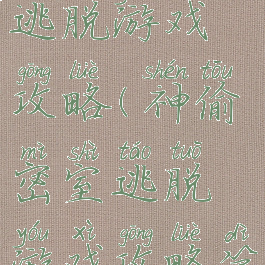 逃脱游戏
gōng lüè shén tōu
攻略(神偷
mì shì táo tuō
密室逃脱
yóu xì gōng lüè dì
游戏攻略